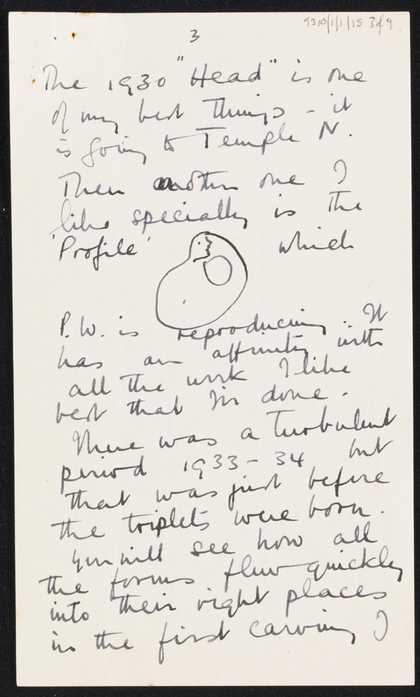 9310/1/1/15 3of9
3
The 1930 "Head" is one
of my best things - it
is going to Temple N.
Then another one I
like specially is the
'Profile' which
P.W. is reproducing. It
has an affinity with
all the work I like
best that I'm done.
There was a turbulent
period 1933-34 but
that was just before
the triplets were born.
You will see how all
the forms flew quickly
into their right places
in the first carving I